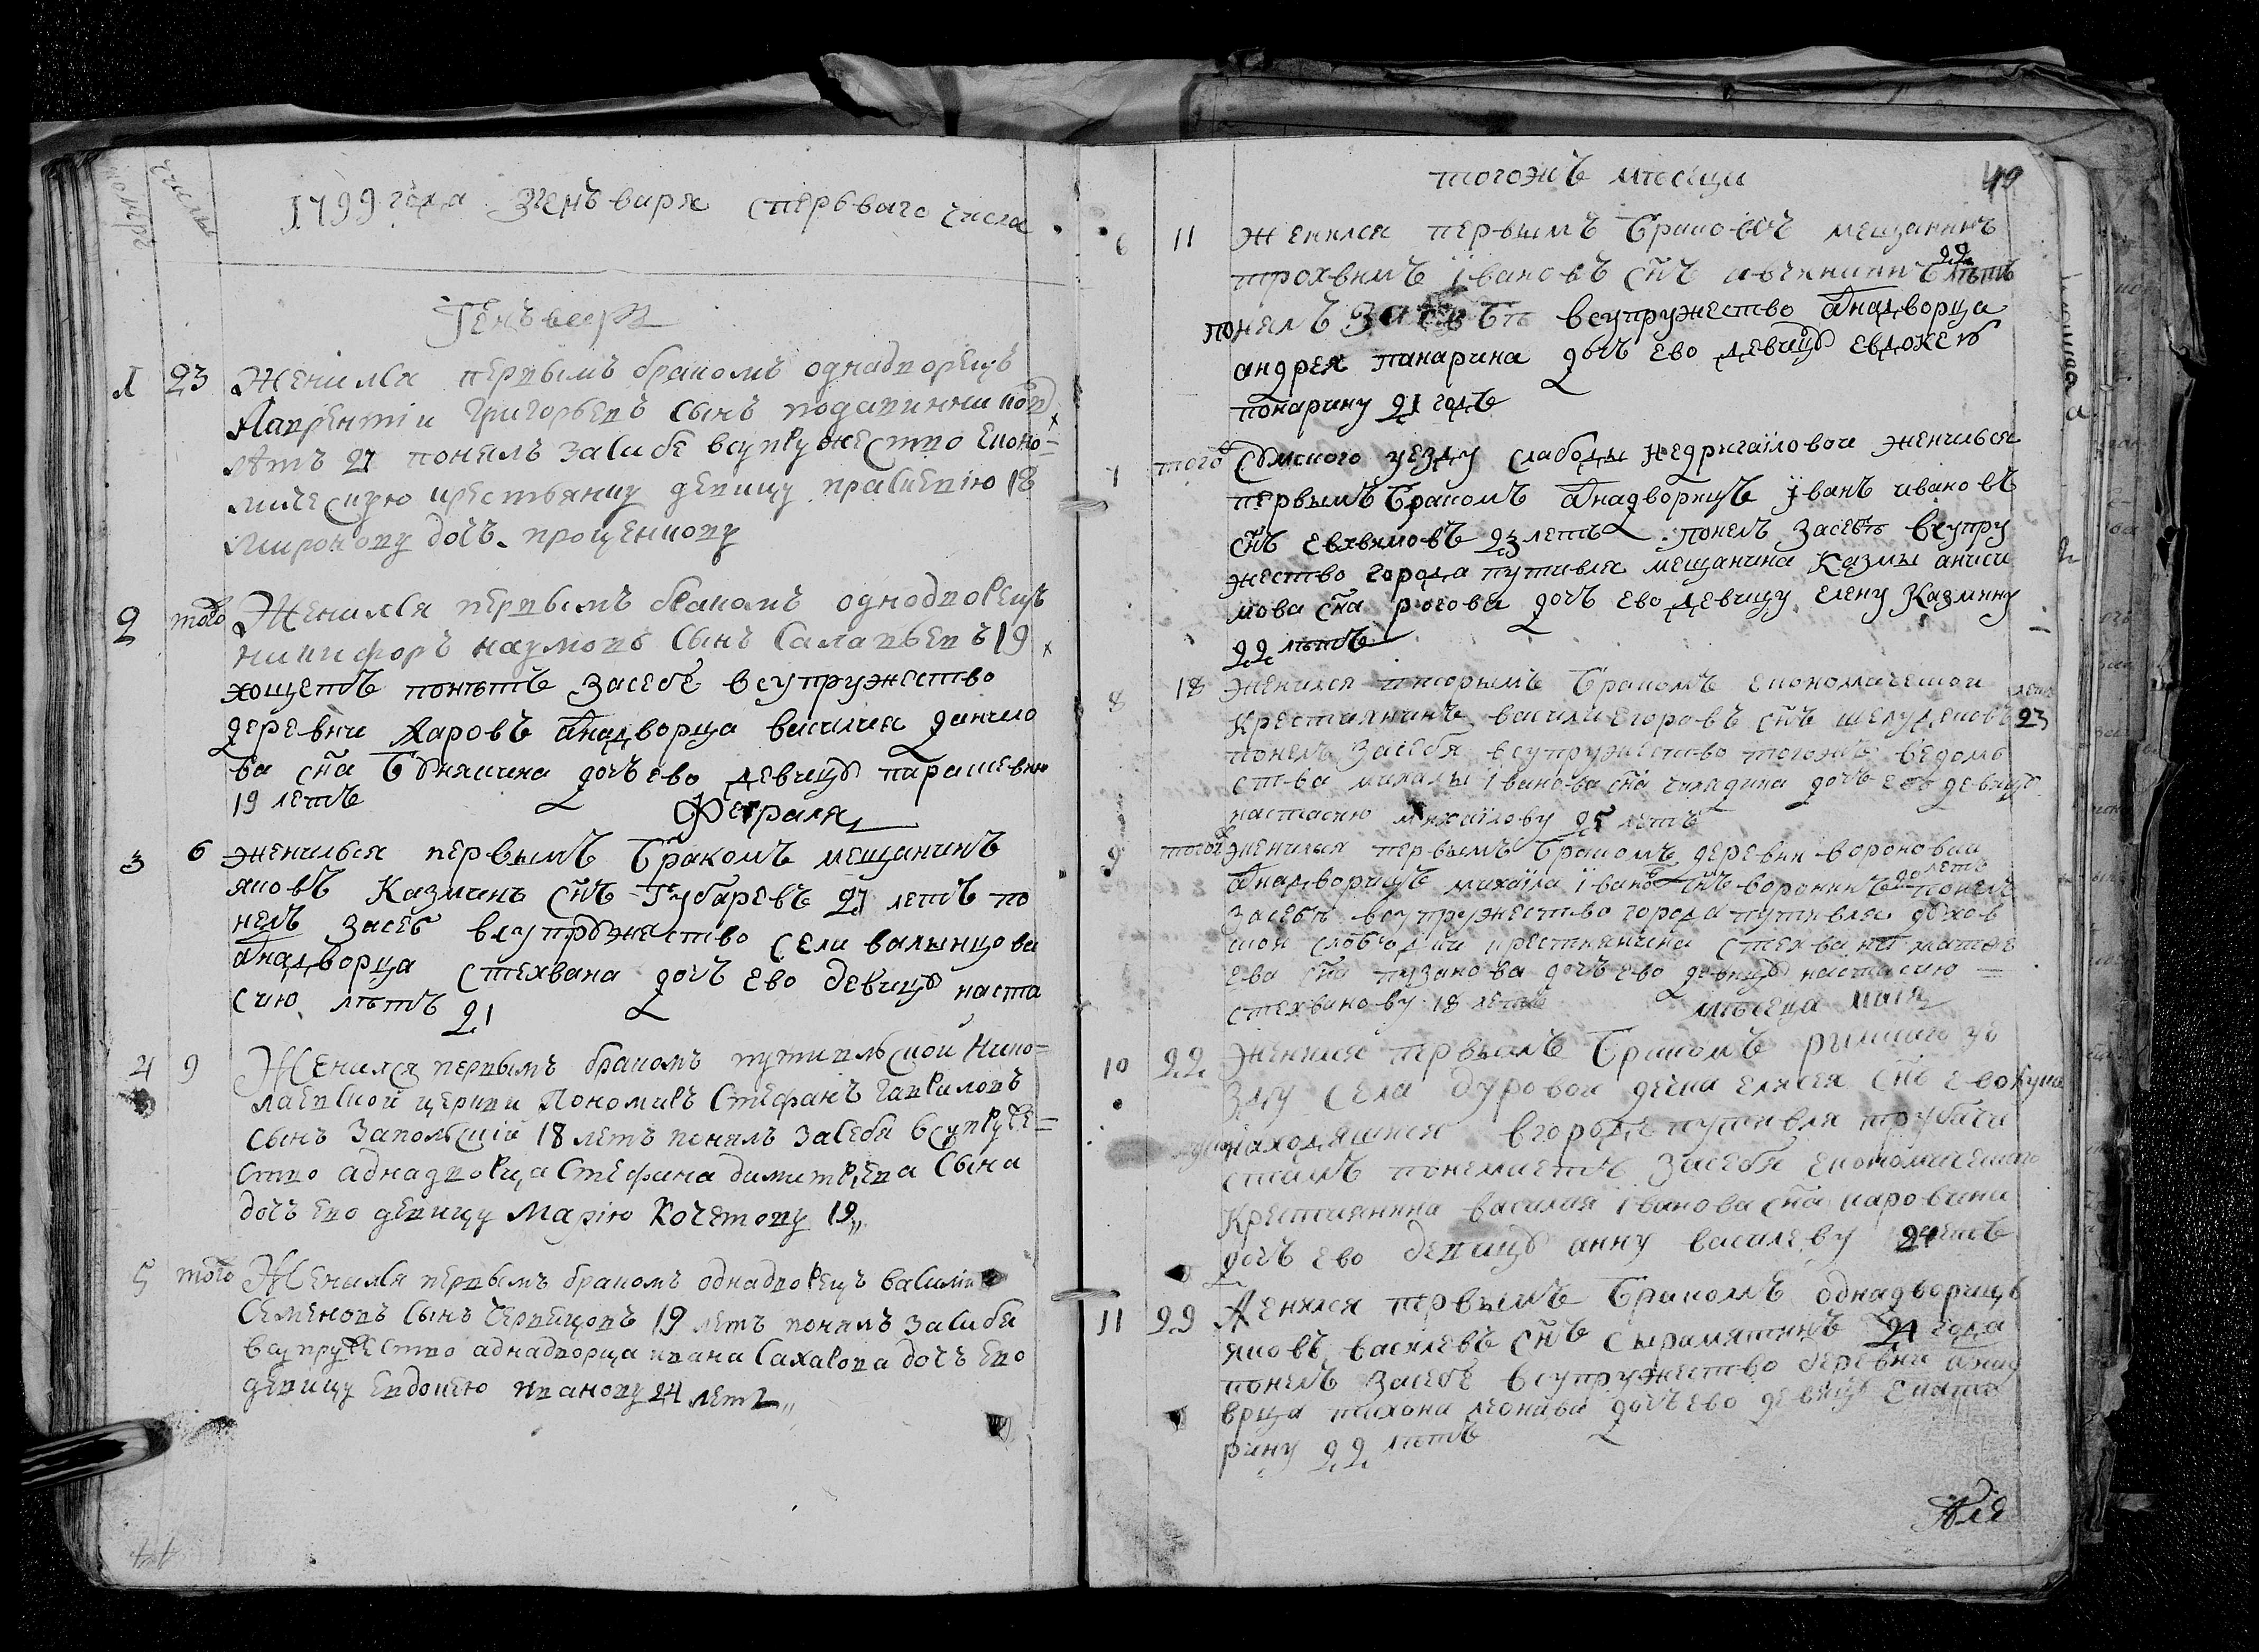 номеръ числы
1799 года Згенъваря сперваго числа
Генъваря
1 23 Женился первымъ бракомъ однадворецъ
Лаврентiи Григорьевъ сынъ
летъ 21 понялъ засебе всупружество еконо=
мическую крестьянку девицу 18
Миронову дочь проценкову
2 того Женился первымъ бракомъ однодворецъ
никифоръ наумовъ сынъ Салатьевъ 19
хощетъ понятъ засебе всупружество
деревни Харовъ аднадворца василия данило
ва сна дочъ ево девицу парасковию
19 летъ
Февраля
3 6 женилься первымъ бракомъ мещанинъ
яковъ Казминъ снъ Губаревъ 21 летъ по
нелъ засеб всупружество села валынцова
аднадворца стехвана дочъ ево девицу наста
сию летъ 21
4 9 Женился первымъ бракомъ путивльской Нико=
лаевской церкви Пономаръ Стефанъ гавриловъ
сынъ Запольскiй 18 летъ понялъ засебя всупруже=
ство аднадворца Стефана димитрiева сына
дочъ ево девицу Марiю Кочетову 19
5 того Женился первымъ бракомъ однадворецъ василiи
Семеновъ сынъ Червецовъ 19 летъ понялъ засибя
всупружество аднадворца ивана Сахарова дочъ ево
девицу Евдокею иванову 24 летъ
44
тогожъ месеца
40
6 11 женился первымъ бракомъ мещанинъ
трохвимъ iвановъ снъ авчинникъ 22 летъ
понялъ засебъ всупружество аднадворца
андрея панарина дочъ ево девицу евдокею
понарину 21 годъ
7 того Сумского уезду слабоды недригаiловои женилься
первымъ бракомъ аднадворецъ iванъ ивановъ
снъ евхимовъ 23 летъ понелъ засебъ всупру
жество города путивля мещанина Казмы аниси
мова сна рогова дочъ ево девицу елену Казмину
22 летъ
8 18 женился вторымъ бракомъ економическои
Крестиянинъ василiи Егоровъ снъ шелудковъ летъ 23
понелъ засебя всупружество тогожъ ведомъ
ства михаилы iванова сна дочъ ево девицу
настасию михаiлову 25 летъ
9 того женился первымъ бракомъ деревни вороновки
аднадворецъ михаiла iвановъ снъ воронинъ 20 летъ понелъ
засебъ всупружество города путивля духов
скои слободки крестиянина стехвана матве
ева сна пузанова дочъ ево девицу настасию
стехванову 18 летъ
месеца маiя
10 22 женился первымъ бракомъ рылскаго уе
зду села дуровои дiака елисея снъ евокумъ
находящися вгороде путивля
понемаетъ засебя економическаго
Крестиянина василия iванова сна
дочъ ево девицу анну василеву 24 летъ
11 22 женился первымъ бракомъ однадворицъ
яковъ василевъ снъ сыромятинъ 21 года
понелъ засебе всупружество деревни аднад
ворца тихона леонова дочъ ево девицу екате
рину 22 летъ